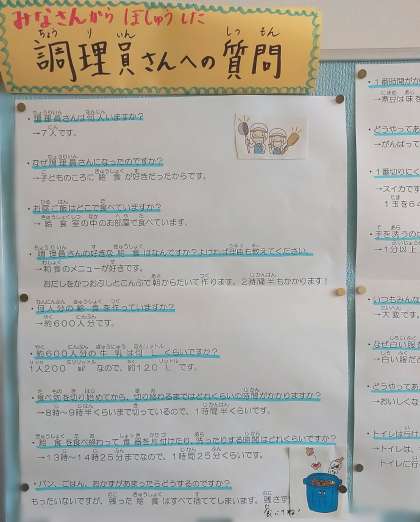 みなさんから ぼしゅうした
調理員さんへの質問
・調理員さんは何人いますか？
→7人です。
・なぜ調理員さんになったのですか？
→子どものころに給食が好きだったからです。
・お昼ご飯はどこで食べていますか？
→給食室の中のお部屋で食べています。
・調理員さんの好きな給食はなんですか？よければ理由も教えてください。
→和食のメニューが好きです。
おだしをかつおぶしとこんぶで朝からだいて作ります。2時間半もかかります！
・何人分の給食を作っていますか？
→約600人分です。
・約600人分の牛乳は何Lくらいですか？
1人200mlなので、約120Lです。
・食べ物を切り始めてから、切り終わるまではどれくらいの時間がかかりますか？
→8時～9時半くらいまで切っているので、1時間半くらいです。
・給食を食べ終わって食器を片付けたり、洗ったりする時間はどれくらいですか？
→13時～14時25分までなので、1時間25分くらいです。
・パン、ごはん、おかずがあまったらどうするのですか？
もったいないですが、残った給食はすべて捨ててしまいます。
残さず
食べてね！
・1番時間がか
→煮豆は味を
・どうやってあ
→がんばって
・1番切りにく
→スイカです
1玉を64
・手を洗うのは
→1分以上
・いつもみんな
→大変です。
・なぜ白い服だ
→白い服だ
・どうやってあ
→おいしくな
・トイレは行け
→トイレは、
トイレに行